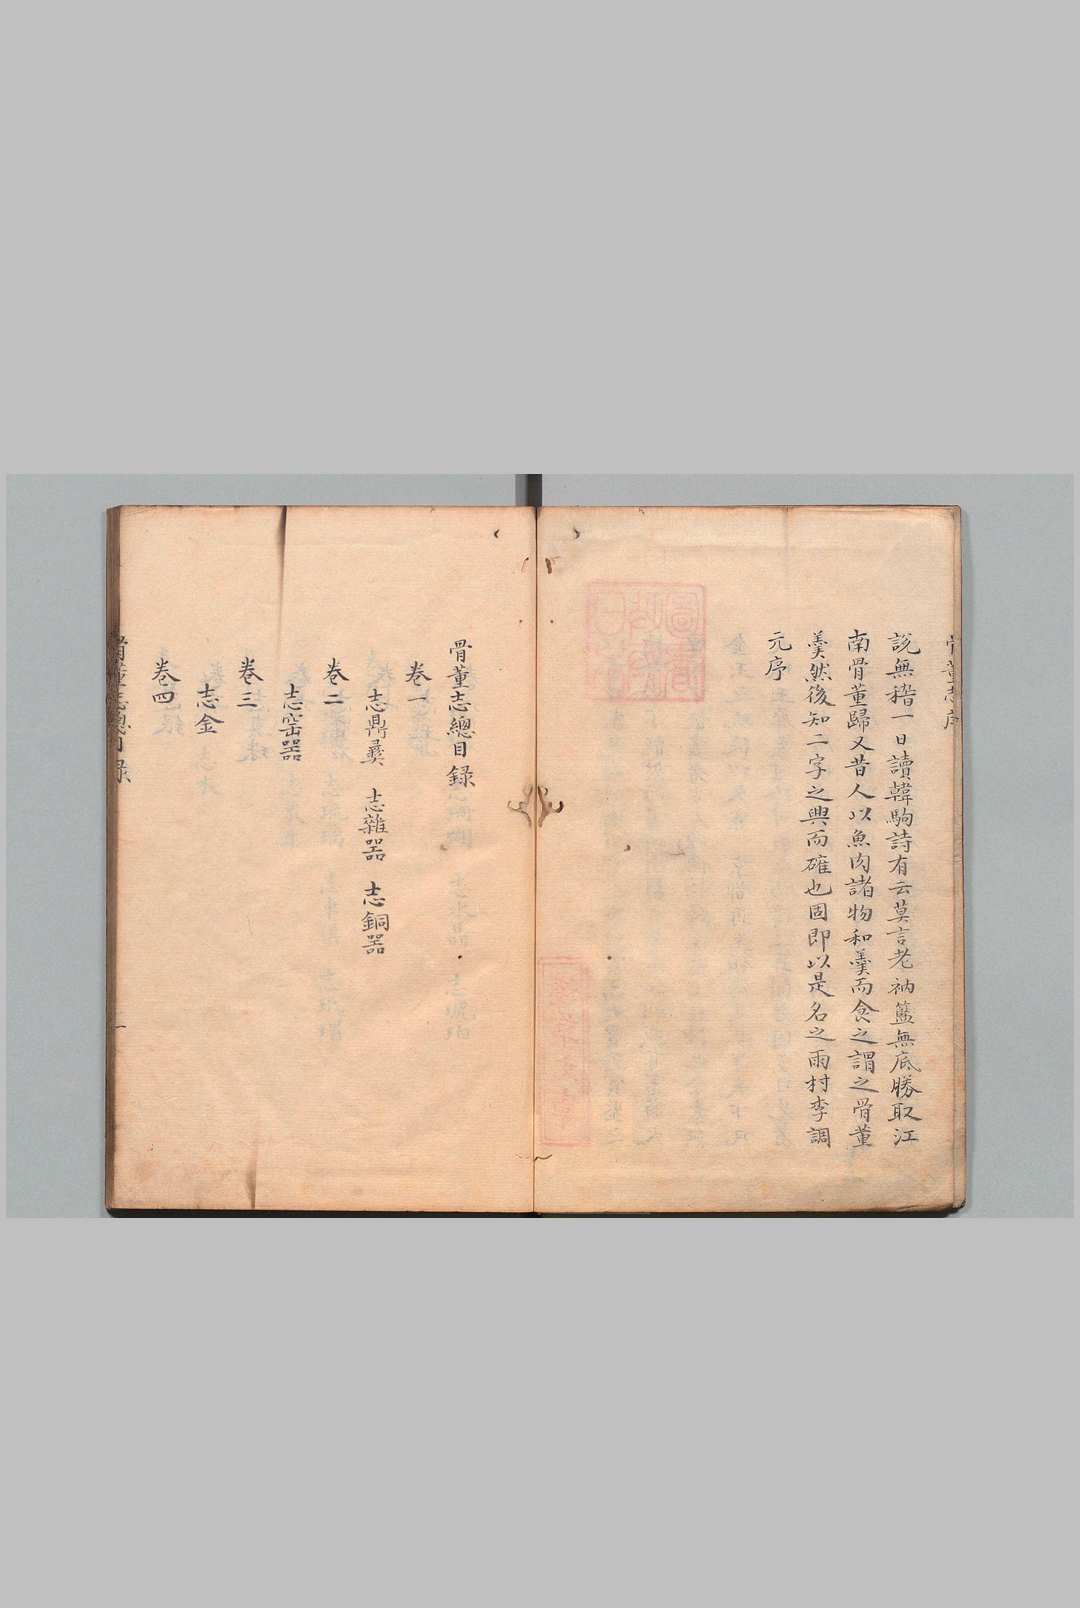 骨董志序
說無稽一日讀韓駒詩有云莫言老衲籃無底勝取江
南骨董歸又昔人以魚肉諸物和羹而食之謂之骨董
羹然後知二字之典而確也固即以是名之雨村李調
元序
骨董志總目録
卷一
志鼎彞 志雜器 志銅器
卷二
志窑器
卷三
志金
卷四
骨董志總目録
一